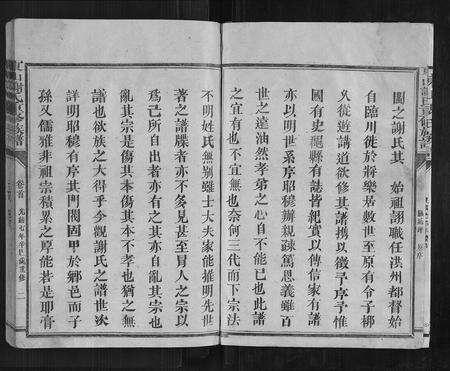 閩之謝氏其 始祖詡職任洪州都督始
自臨川徙於將樂居數世至原有令子梆
久從遊講道欲修其譜携以徵予序予惟
國有史郡縣有誌皆紀實以傳信家有譜
亦以明世系序昭穆辦親疎篤恩義雖百
世之遠油然孝弟之心自不能已也此譜
之宜有也不宜無也奈何三代而下宗法
不明姓氏無別雖士大夫家能推明先世
著之譜牒者亦不多見甚至冒人之宗以
為己所自出者有之亦不自亂其宗也
亂其宗是傷其本傷其本不孝也猶之無
譜也欲族之大得乎今觀謝氏之譜世次
詳明昭穆有序其門閥固甲於鄉邑而子
孫又儒雅非祖宗積累之厚能若是耶膏
卷首
光緒七年辛巳歲重修